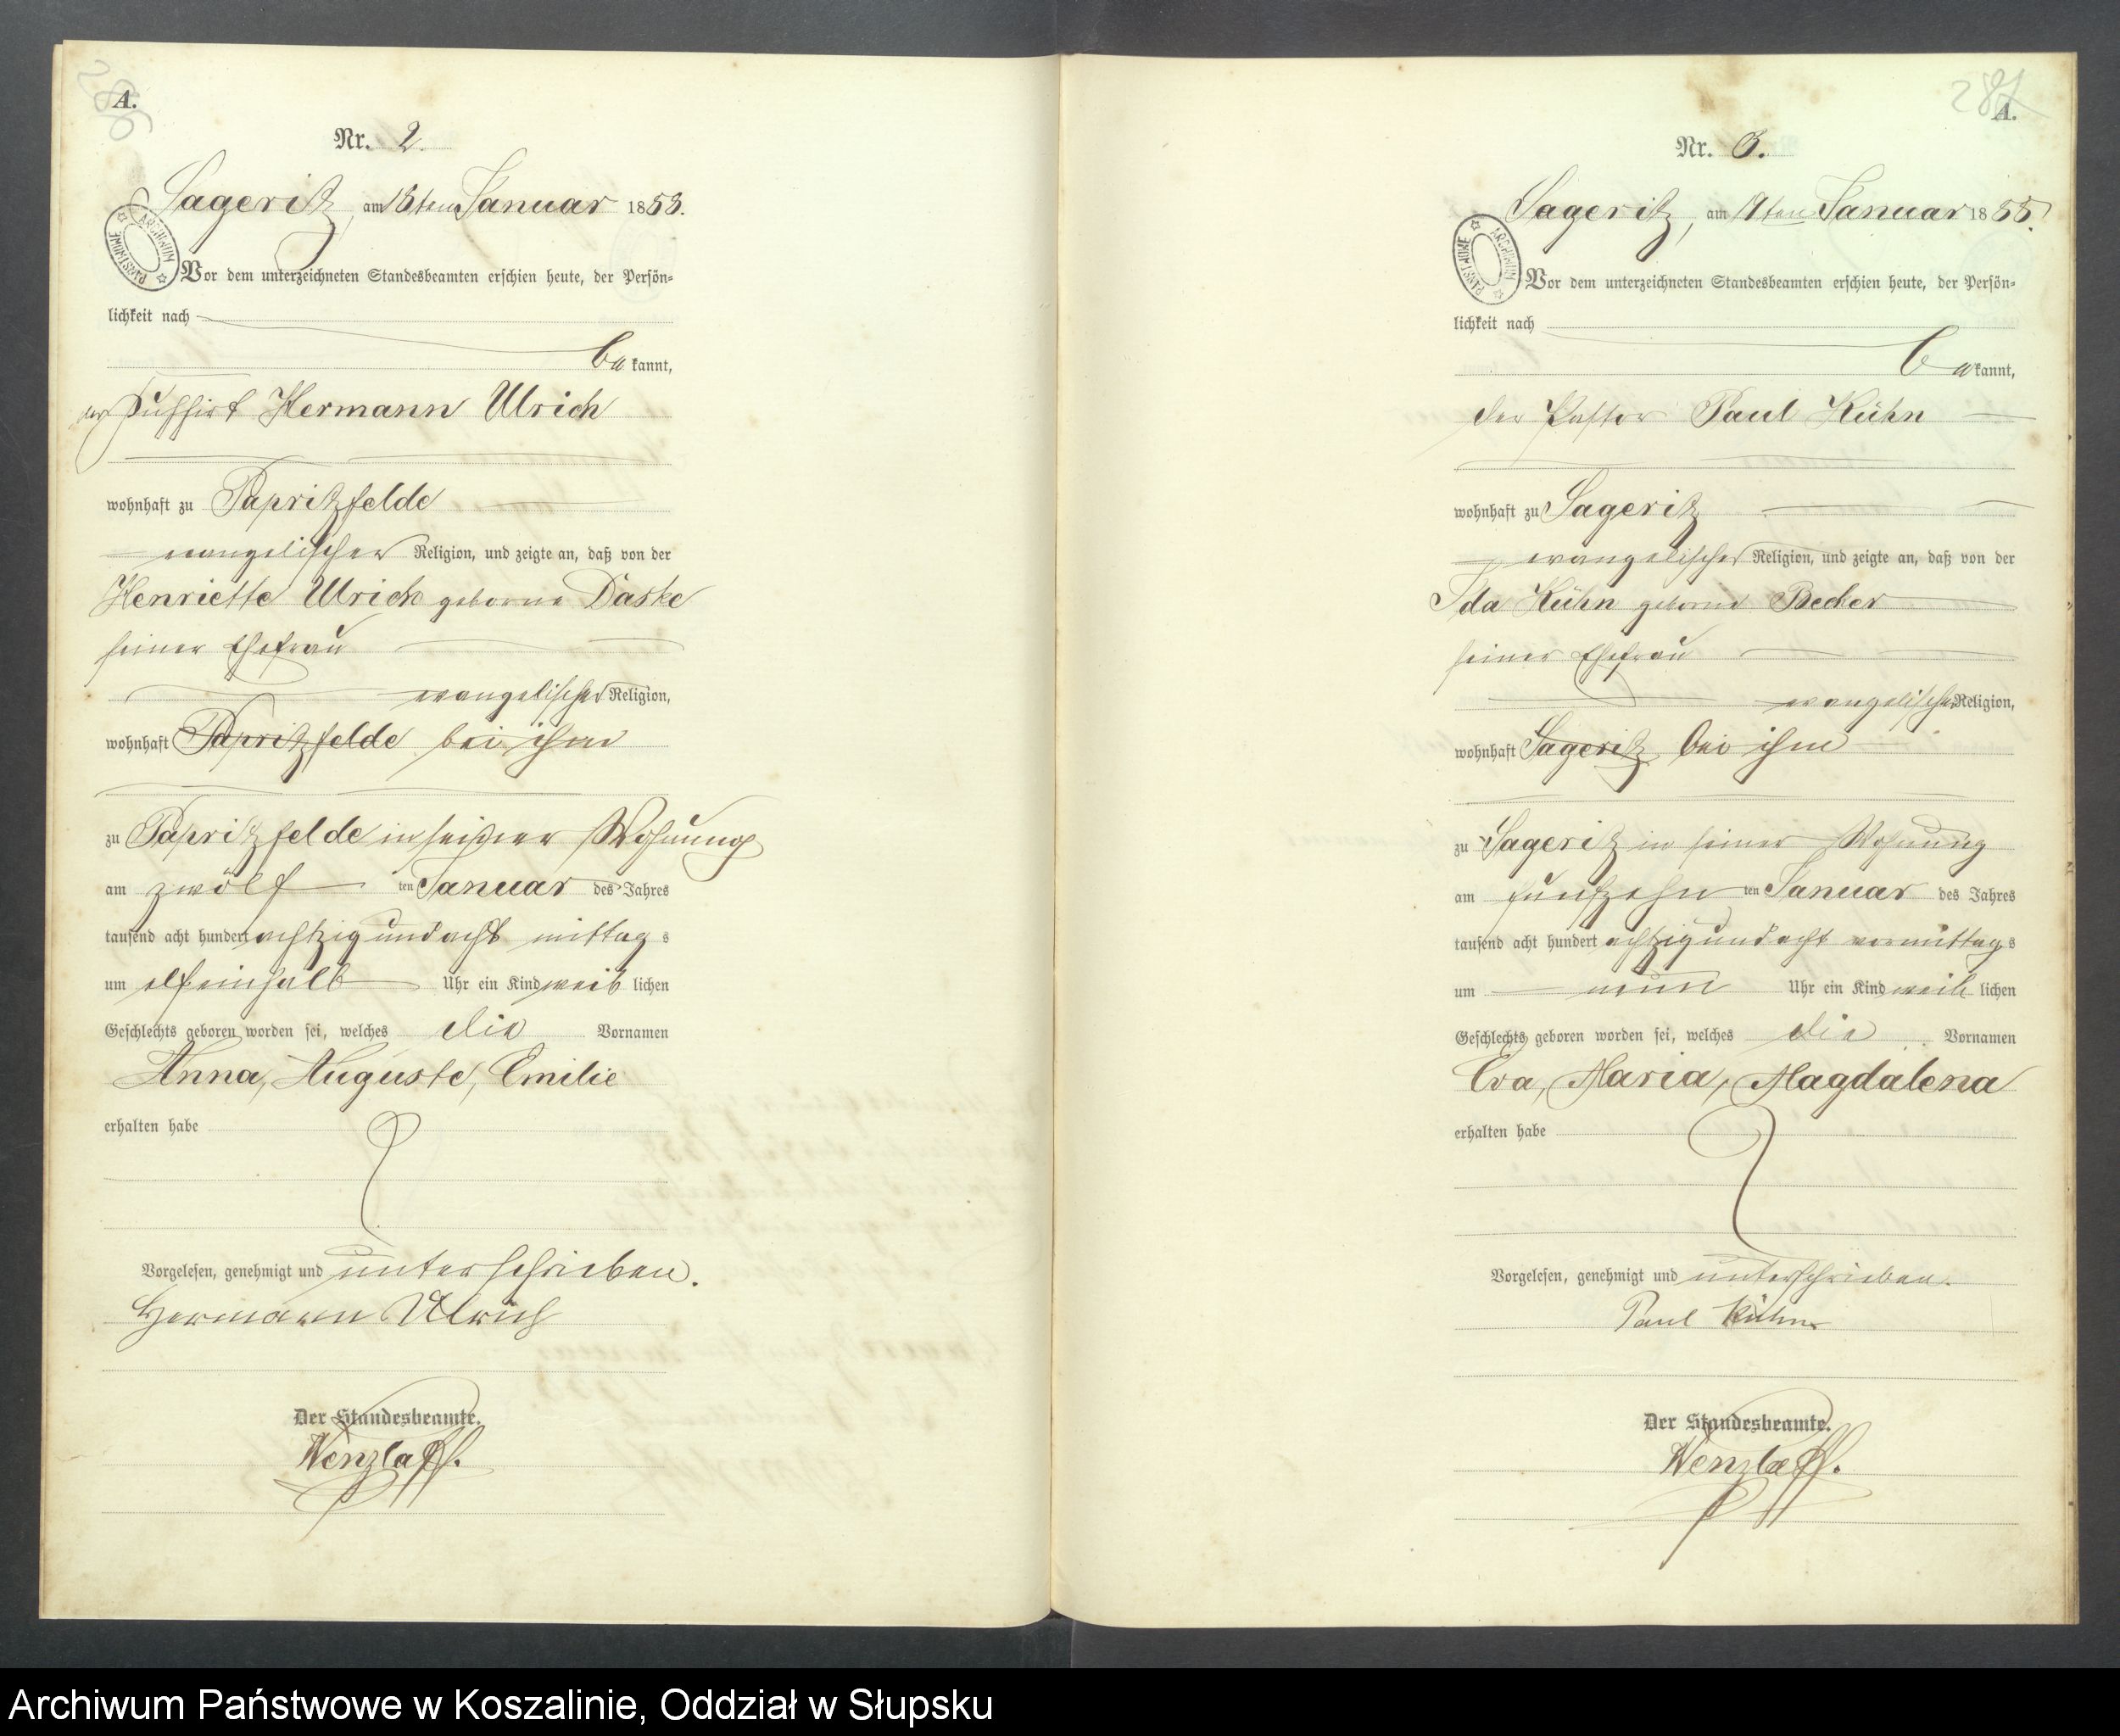 286
A.
Nr. 2.
Sageritz, am 18ten Januar 1888.
ARCHIWUM PAŃSTWOWE
Vor dem unterzeichneten Standesbeamten erschien heute, der Persön=
lichkeit nach
be kannt,
der Kuhhirt Hermann Ulrich
wohnhaft zu Papritzfelde
evangelischer Religion, und zeigte an, daß von der
Henriette Ulrich geborne Daske
seiner Ehefrau
evangelischer Religion,
wohnhaft Papritzfelde bei ihm
zu Papritzfelde in seiner Wohnung
am zwölf ten Januar des Jahres
tausend acht hundert achtzig und acht mittag s
um elfeinhalb Uhr ein Kind weib lichen
Geschlechts geboren worden sei, welches die Vornamen
Anna, Auguste, Emilie
erhalten habe
Vorgelesen, genehmigt und unterschrieben.
Hermann Ulrich
Der Standesbeamte.
Wenzlaff.
287
A.
Nr. 3.
Sageritz, am 19ten Januar 1888.
ARCHIWUM PAŃSTWOWE
Vor dem unterzeichneten Standesbeamten erschien heute, der Persön=
lichkeit nach
be kannt,
der Pastor Paul Kühn
wohnhaft zu Sageritz
evangelischer Religion, und zeigte an, daß von der
Ida Kühn geborne Becker
seiner Ehefrau
evangelischer Religion,
wohnhaft Sageritz bei ihm
zu Sageritz in seiner Wohnung
am funfzehn ten Januar des Jahres
tausend acht hundert achtzig und acht vormittag s
um neun Uhr ein Kind weib lichen
Geschlechts geboren worden sei, welches die Vornamen
Eva, Maria, Magdalena
erhalten habe
Vorgelesen, genehmigt und unterschrieben.
Paul Kühn
Der Standesbeamte.
Wenzlaff.
Archiwum Państwowe w Koszalinie, Oddział w Słupsku